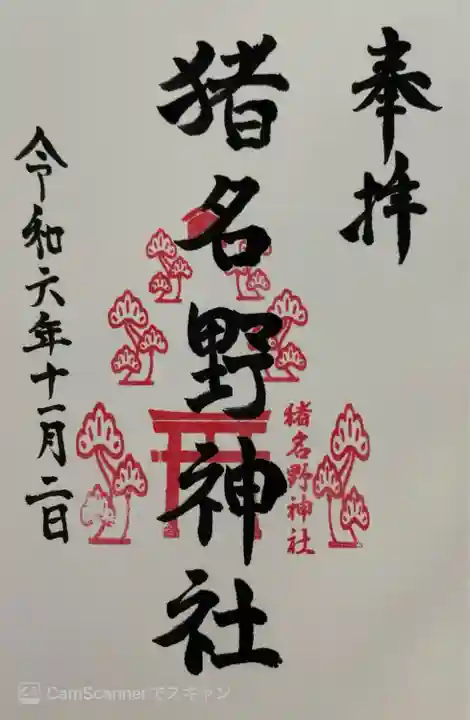 奉拝
猪名野神社
猪名野神社
令和六年十一月二日
CamScannerでスキャン